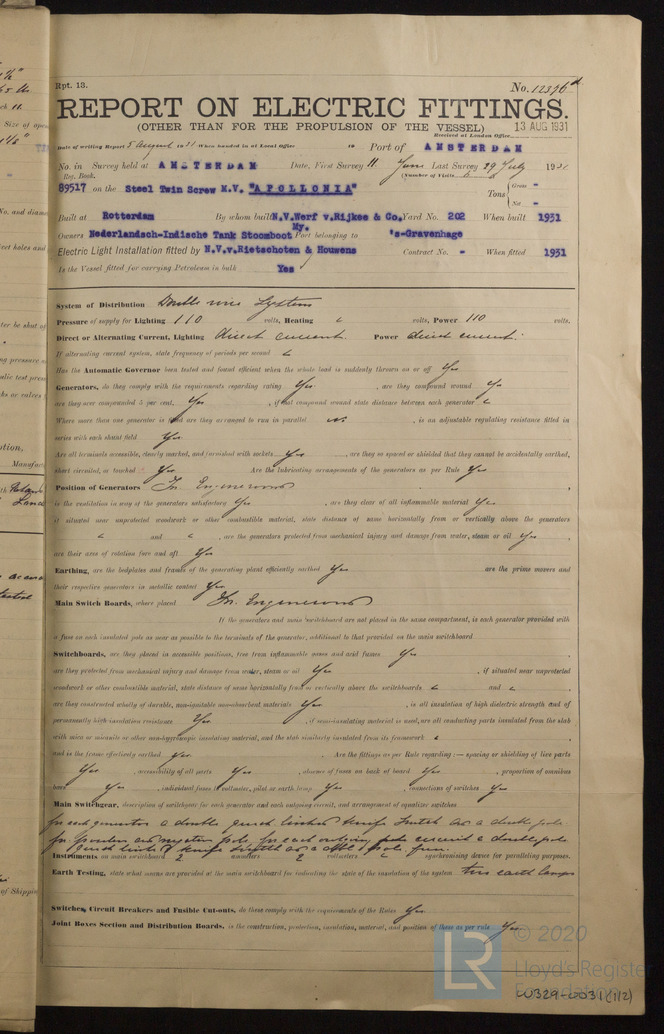 Rpt. 13.
No. 12376d
REPORT ON ELECTRIC FITTINGS.
(OTHER THAN FOR THE PROPULSION OF THE VESSEL)
Received at London Office
13 AUG 1931
Date of writing Report 5 August 1931 When handed in at Local Office 19 Port of AMSTERDAM
No. in Survey held at AMSTERDAM Date, First Survey 11 June Last Survey 29 July 1931
Reg. Book. (Number of Visits
89517 on the Steel Twin Screw M.V. "APOLLONIA" Tons { Gross -
Net -
Built at Rotterdam By whom built N.V.Werf v.Rijkee & Co. Yard No. 202 When built 1931
Owners Nederlandsch-Indische Tank Stoomboot My. Port belonging to 's-Gravenhage
Electric Light Installation fitted by N.V.v.Rietschoten & Houwens Contract No. - When fitted 1931
Is the Vessel fitted for carrying Petroleum in bulk Yes
System of Distribution Double wire System
Pressure of supply for Lighting 110 volts, Heating volts, Power 110 volts.
Direct or Alternating Current, Lighting direct current. Power direct current.
If alternating current system, state frequency of periods per second
Has the Automatic Governor been tested and found efficient when the whole load is suddenly thrown on or off Yes
Generators, do they comply with the requirements regarding rating Yes, are they compound wound Yes
are they over compounded 5 per cent. Yes, if not compound wound state distance between each generator
Where more than one generator is fitted are they arranged to run in parallel no, is an adjustable regulating resistance fitted in
series with each shunt field Yes
Are all terminals accessible, clearly marked, and furnished with sockets Yes, are they so spaced or shielded that they cannot be accidentally earthed,
short circuited, or touched Yes Are the lubricating arrangements of the generators as per Rule Yes
Position of Generators In Engineroom
is the ventilation in way of the generators satisfactory Yes, are they clear of all inflammable material Yes
if situated near unprotected woodwork or other combustible material, state distance of same horizontally from or vertically above the generators
and , are the generators protected from mechanical injury and damage from water, steam or oil Yes,
are their axes of rotation fore and aft Yes
Earthing, are the bedplates and frames of the generating plant efficiently earthed Yes are the prime movers and
their respective generators in metallic contact Yes
Main Switch Boards, where placed In Engineroom
If the generators and main switchboard are not placed in the same compartment, is each generator provided with
a fuse on each insulated pole as near as possible to the terminals of the generator, additional to that provided on the main switchboard
Switchboards, are they placed in accessible positions, free from inflammable gases and acid fumes Yes,
are they protected from mechanical injury and damage from water, steam or oil Yes, if situated near unprotected
woodwork or other combustible material, state distance of same horizontally from or vertically above the switchboards and ,
are they constructed wholly of durable, non-ignitable non-absorbent materials Yes, is all insulation of high dielectric strength and of
permanently high insulation resistance Yes, if semi-insulating material is used, are all conducting parts insulated from the slab
with mica or micanite or other non-hygroscopic insulating material, and the slab similarly insulated from its framework ,
and is the frame effectively earthed Yes. Are the fittings as per Rule regarding :— spacing or shielding of live parts
Yes, accessibility of all parts Yes, absence of fuses on back of board Yes, proportion of omnibus
bars Yes, individual fuses to voltmeter, pilot or earth lamp Yes, connections of switches Yes
Main Switchgear, description of switchgear for each generator and each outgoing circuit, and arrangement of equaliser switches
for each generator a double
for each outgoing circuit a double pole
Instruments on main switchboard 2 ammeters 2 voltmeters synchronising device for paralleling purposes.
Earth Testing, state what means are provided at the main switchboard for indicating the state of the insulation of the system two earth lamps
Switches, Circuit Breakers and Fusible Cut-outs, do these comply with the requirements of the Rules Yes
Joint Boxes Section and Distribution Boards, is the construction, protection, insulation, material, and position of these as per rule Yes
LR
© 2020
Lloyd's Register
Foundation
W329-0031 (1/2)